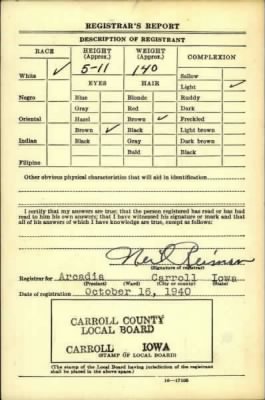 REGISTRAR'S REPORT
DESCRIPTION OF REGISTRANT
RACE HEIGHT (Approx.) WEIGHT (Approx.) COMPLEXION
White ✓ 5-11 140 Sallow
EYES HAIR Light ✓
Negro Blue Blonde Ruddy
Gray Red Dark
Oriental Hazel Brown ✓ Freckled
Brown ✓ Black Light brown
Indian Black Gray Dark brown
Bald Black
Filipino
Other obvious physical characteristics that will aid in identification
I certify that my answers are true; that the person registered has read or has had
read to him his own answers; that I have witnessed his signature or mark and that
all of his answers of which I have knowledge are true, except as follows:
(Signature of registrar)
Registrar for Arcadia Carroll Iowa
(Precinct) (Ward) (City or county) (State)
Date of registration October 16, 1940
CARROLL COUNTY
LOCAL BOARD
CARROLL IOWA
(STAMP OF LOCAL BOARD)
(The stamp of the Local Board having jurisdiction of the registrant
shall be placed in the above space.)